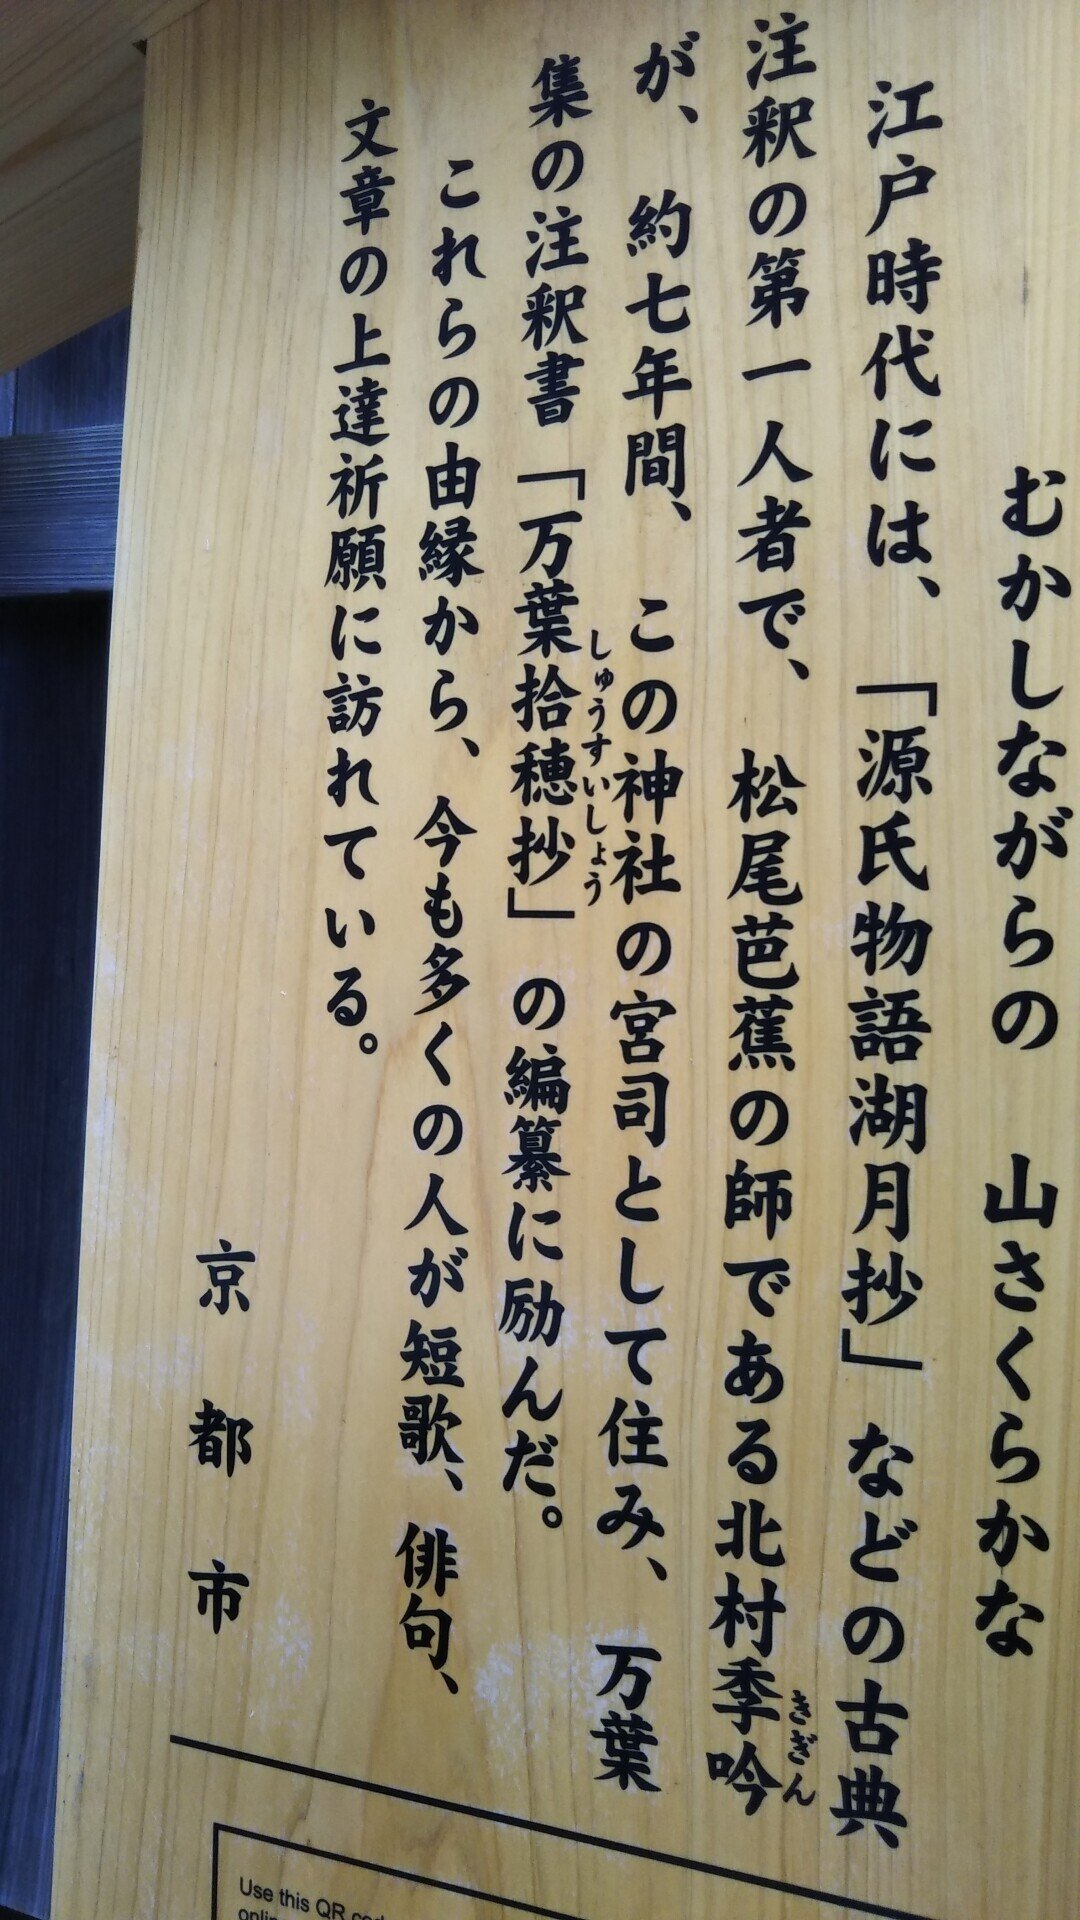 むかしながらの 山さくらかな
江戸時代には、「源氏物語湖月抄」などの古典
注釈の第一人者で、松尾芭蕉の師である北村季吟
きぎん
が、約七年間、この神社の宮司として住み、万葉
集の注釈書「万葉拾穂抄」の編纂に励んだ。
しゅうすいしょう
これらの由縁から、今も多くの人が短歌、俳句、
文章の上達祈願に訪れている。
京都市
Use this QR